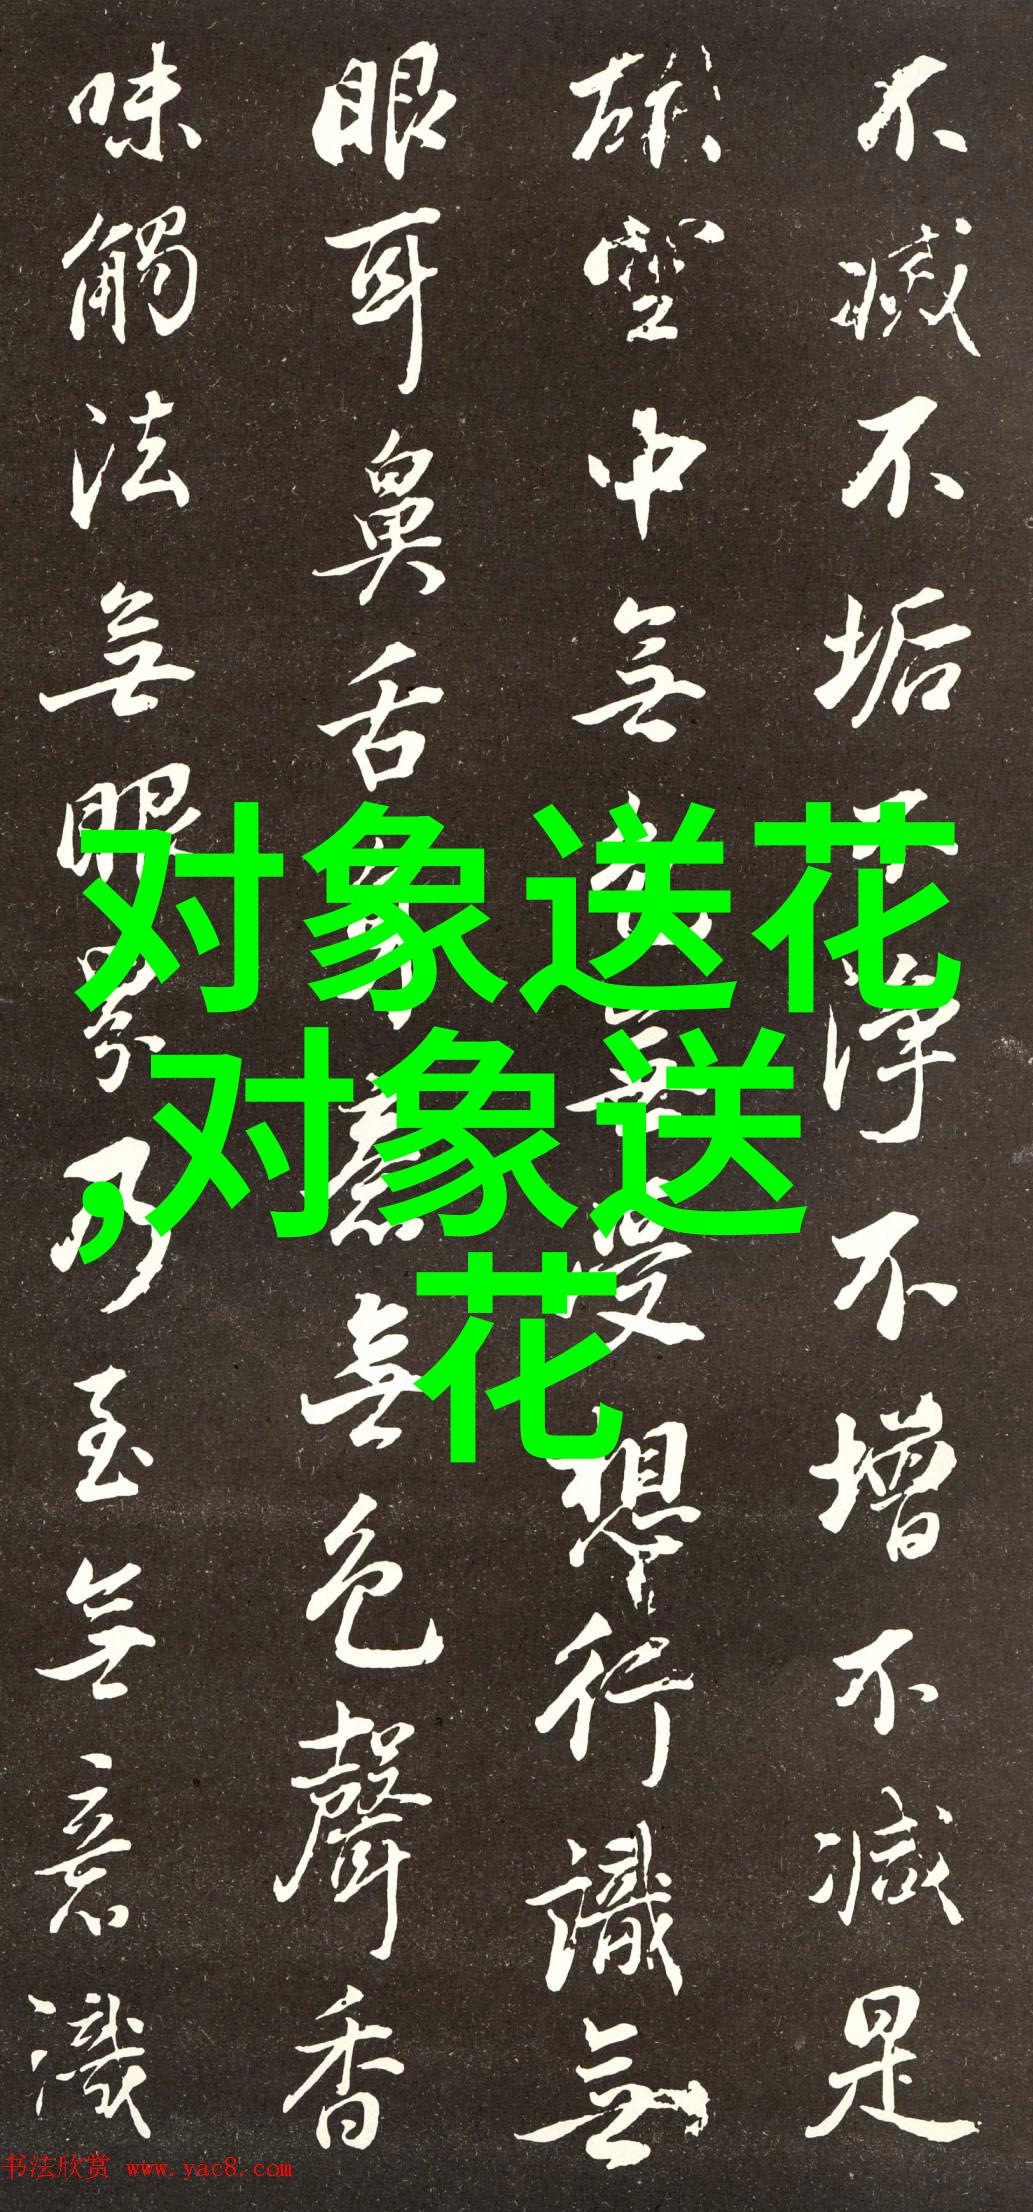 不滅不垢不淨不增不減是
空中無色無受想行識無
眼耳鼻舌身意無色聲香
味觸法無眼界乃至無意識
对象送花
,对象送
花
书法欣赏 www.yac8.com